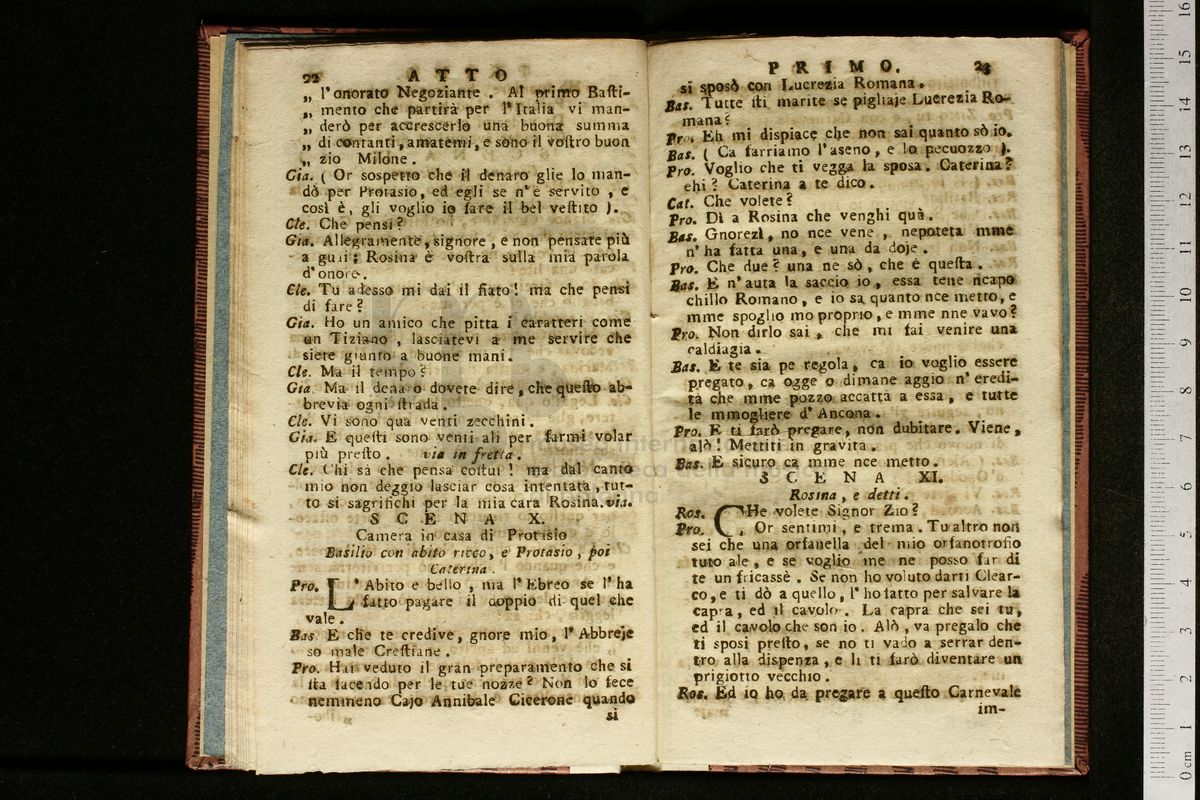 22 ATTO
„ l'onorato Negoziante . Al primo Baſti-
„ mento che partirà per l'Italia vi man-
„ derò per accreſcerlo una buona ſumma
„ di contanti, amatemi, e sono il voſtro buon
„ zio Milone.
Gia. ( Or soſpetto che il denaro glie lo man-
dò per Protasio, ed egli se n'è servito , e
così è, gli voglio io fare il bel veſtito ).
Cle. Che pensi?
Gia. Allegramente, signore , e non pensate più
a guai; Rosina è voſtra sulla mia parola
d'onore.
Cle. Tu adesso mi dai il fiato! ma che pensi
di fare?
Gia. Ho un amico che pitta i caratteri come
un Tiziano , lasciatevi a me servire che
siete giunto a buone mani.
Cle. Ma il tempo?
Gia. Ma il denaro dovete dire, che queſto ab-
brevia ogni ſtrada.
Cle. Vi sono qua venti zecchini.
Gia. E queſti sono venti ali per farmi volar
più preſto . via in fretta.
Cle. Chi sà che pensa coſtui ! ma dal canto
mio non deggio lasciar cosa intentata, tut-
to si sagrifichi per la mia cara Rosina. via.
SCENA X.
Camera in casa di Protasio
Basilio con abito ricco, e Protasio , poi
Caterina.
Pro. L'Abito è bello , ma l'Ebreo se l'ha
fatto pagare il doppio di quel che
vale.
Bas E che te credive, gnore mio, l'Abbreje
so male Creſtiane.
Pro. Hai veduto il gran preparamento che si
ſta facendo per le tue nozze? Non lo fece
nemmeno Cajo Annibale Cicerone quando
si
PRIMO. 23
si sposò con Lucrezia Romana.
Bas. Tutte ſti marite se pigliaje Lucrezia Ro-
mana?
Pro. Eh mi dispiace che non sai quanto sò io.
Bas. ( Ca farriamo l'aseno, e lo pecuozzo ).
Pro. Voglio che ti vegga la sposa. Caterina?
ehi? Caterina a te dico.
Cat. Che volete?
Pro. Dì a Rosina che venghi quà.
Bas. Gnorezì, no nce vene , nepoteta mme
n'ha fatta una, e una da doje.
Pro. Che due? una ne sò, che è queſta.
Bas. E n'auta la saccio io, essa tene ncapo
chillo Romano, e io sa quanto nce metto, e
mme spoglio mo proprio, e mme nne vavo?
Pro. Non dirlo sai, che mi fai venire una
caldiagia.
Bas. E te sia pe regola, ca io voglio essere
pregato, ca ogge o dimane aggio n'eredi-
tà che mme pozzo accattà a essa, e tutte
le mmogliere d'Ancona.
Pro. E ti farò pregare, non dubitare. Viene,
alò! Mettiti in gravita.
Bas. E sicuro ca mme nce metto.
SCENA XI.
Rosina, e detti.
Ros. CHe volete Signor Zio?
Pro. Or sentimi, e trema. Tu altro non
sei che una orfanella del mio orfanotrofio
tutoale, e se voglio me ne posso far di
te un fricassè. Se non ho voluto darti Clear-
co, e ti dò a quello, l'ho fatto per salvare la
capra, ed il cavolo. La capra che sei tu,
ed il cavolo che son io. Alò, va pregalo che
ti sposi preſto, se no ti vado a serrar den-
tro alla dispenza, e lì ti farò diventare un
prigiotto vecchio.
Ros. Ed io ho da pregare a queſto Carnevale
im-